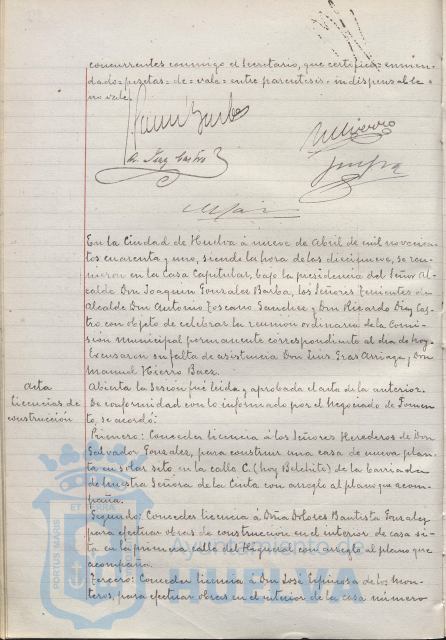 concurrentes conmigo el Secretario, que certifico=enmen-
dado=pesetas=de=vale=entre parentesis=indispensable=
no vale.
En la Ciudad de Huelva á nueve de Abril de mil novecien-
tos cuarenta y uno, siendo la hora de las diecinueve, se reu-
nieron en la Casa Capitular, bajo la presidencia del Señor Al-
calde Don Joaquin Gonzalez Barba, los Señores Tenientes de
Alcalde Don Antonio Toscano Sanchez y Don Ricardo Diaz Cas-
tro con objeto de celebrar la reunión ordinaria de la Comi-
sión municipal permanente correspondiente al dia de hoy.
Excusaron su falta de asistencia Don Luis Gras Arriaga y Don
Manuel Hierro Baez.
Acta
Abierta la Sesión fué leida y aprobada el acta de la anterior.
licencias de
construcción
De conformidad con lo informado por el Negociado de Fomen-
to, se acordó:
Primero: Conceder licencia á los Señores Herederos de Don
Salvador Gonzalez, para construir una casa de nueva plan-
ta en solar sito, en la calle C. (hoy Belchite) de la barriada
de Nuestra Señora de la Cinta con arreglo al plano que acom-
paña.
Segundo: Conceder licencia á Doña Dolores Bautista Gonzalez
para efectuar obras de construcción en el interior de casa si-
ta en la primera calle del Higueral con arreglo al plano que
acompaña.
Tercero: Conceder licencia á Don José Espinosa de los Mon-
teros, para efectuar obras en el interior de la casa número
PORTUS MARIS ET TERRÆ
Ayuntamiento
HUELVA